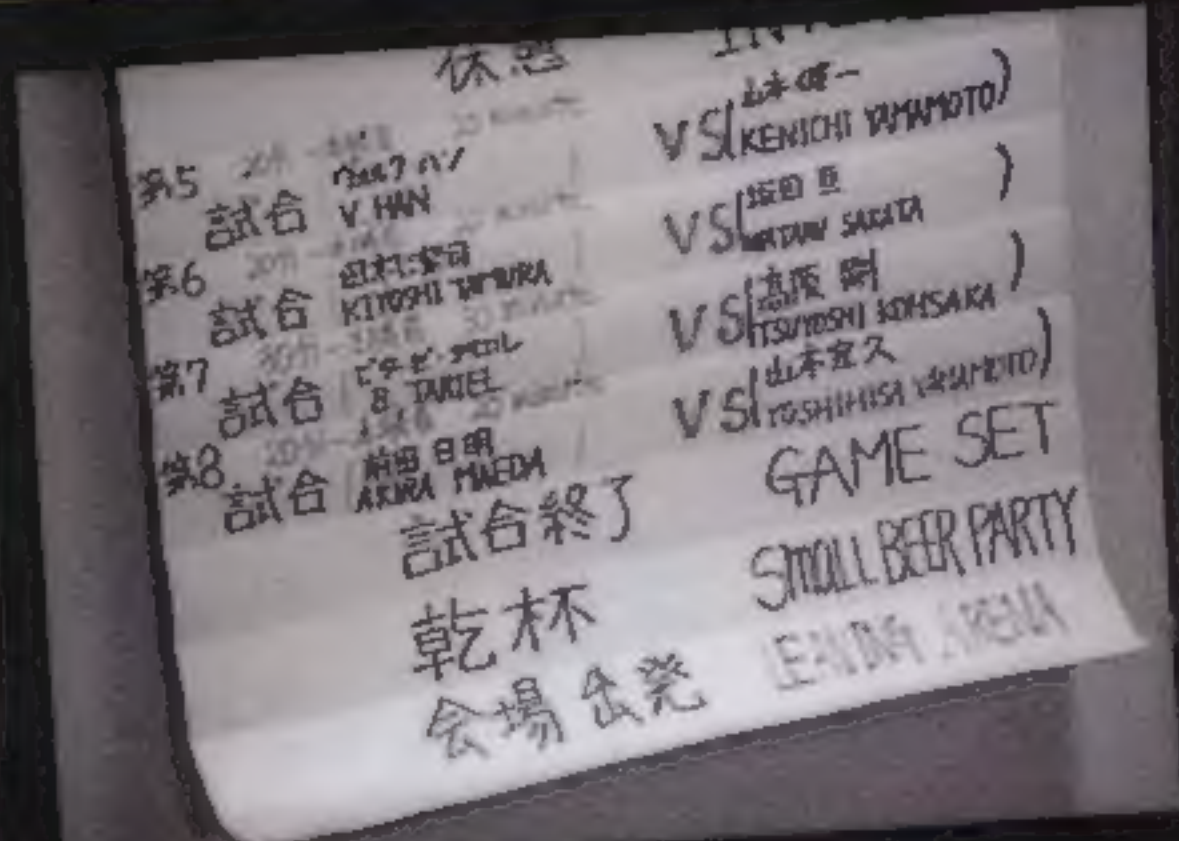 休憩
第5 20分 30 minute
試合 V. HAN VS (山本健一 KENICHI YAMAMOTO)
第6 20分 30 minute
試合 田村潔司 KIYOSHI TAMURA VS (坂田 亘 WATARU SAKATA)
第7 30 minute
試合 B. TARIEL VS (高阪 剛 TSUYOSHI KOHSAKA)
第8 20分
試合 前田日明 AKIRA MAEDA VS (山本宜久 YOSHIHISA YAMAMOTO)
試合終了 GAME SET
乾杯 SMOLL BEER PARTY
会場出発 LEAVING ARENA